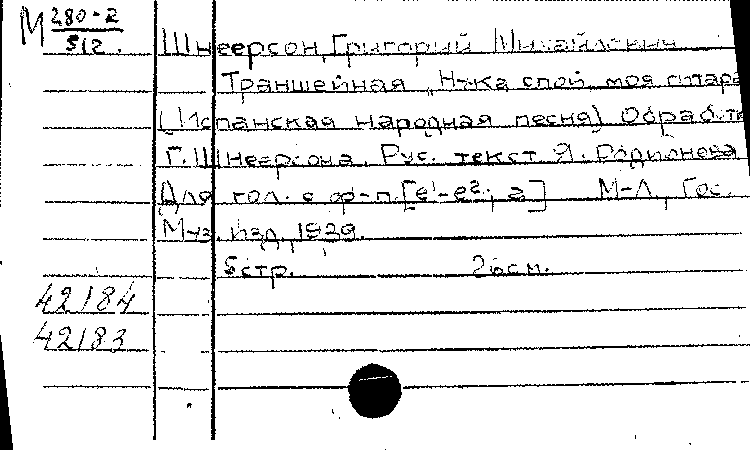 М 280-2
512.
Шнеерсон, Григорий Михайлович
Траншейная "Н-ка спой моя гитара
(Испанская народная песня) Обработка
Г. Шнеерсона. Рус. текст Я. Родионова
Для гол. с ф-п. [e¹-e²; a] М-Л, Гос.
Муз. изд., 1939.
5стр. 26см.
42184
42183